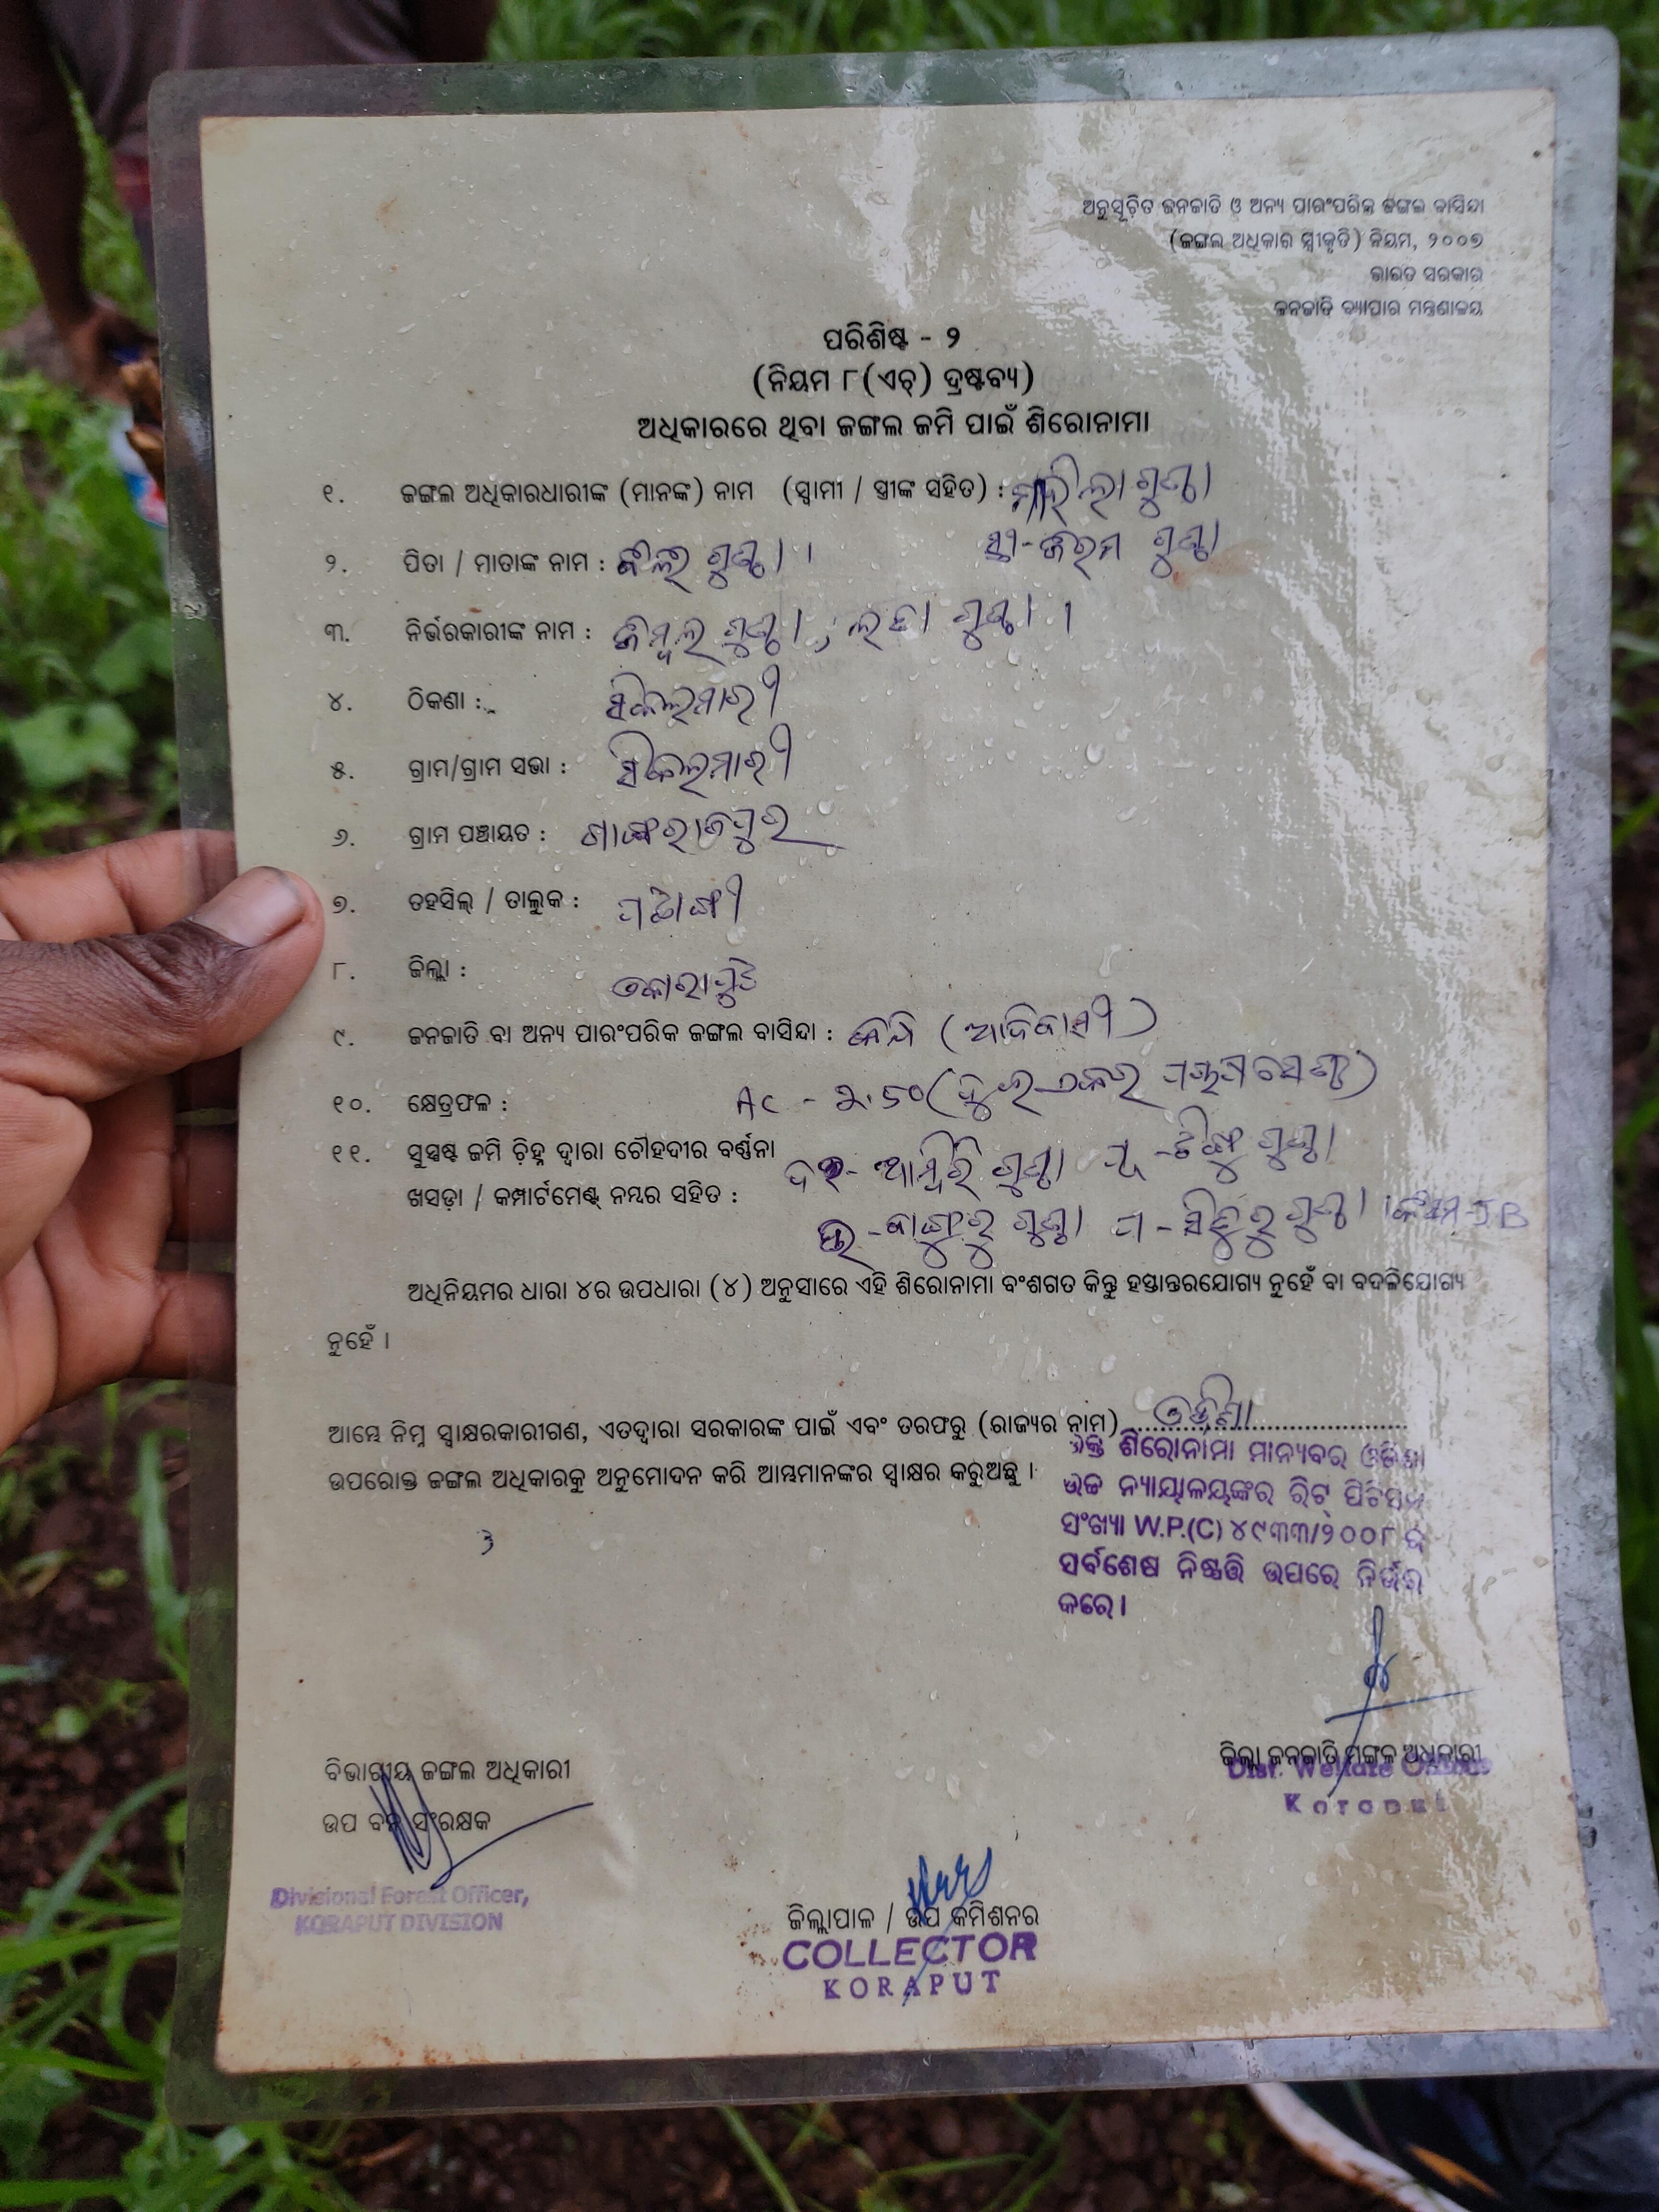 ଅନୁସୂଚିତ ଜନଜାତି ଓ ଅନ୍ୟ ପାରଂପରିକ ଜଙ୍ଗଲ ବାସିନ୍ଦା
(ଜଙ୍ଗଲ ଅଧିକାର ସ୍ୱୀକୃତି) ନିୟମ, ୨୦୦୭
ଭାରତ ସରକାର
ଜନଜାତି ବ୍ୟାପାର ମନ୍ତ୍ରଣାଳୟ
ପରିଶିଷ୍ଟ - ୨
(ନିୟମ ୮(ଏଚ୍) ଦ୍ରଷ୍ଟବ୍ୟ)
ଅଧିକାରରେ ଥିବା ଜଙ୍ଗଲ ଜମି ପାଇଁ ଶିରୋନାମା
୧. ଜଙ୍ଗଲ ଅଧିକାରଧାରୀଙ୍କ (ମାନଙ୍କ) ନାମ (ସ୍ୱାମୀ / ସ୍ତ୍ରୀଙ୍କ ସହିତ) :
୨. ପିତା / ମାତାଙ୍କ ନାମ :
୩. ନିର୍ଭରକାରୀଙ୍କ ନାମ :
୪. ଠିକଣା : ସିକଲମାରୀ
୫. ଗ୍ରାମ/ଗ୍ରାମ ସଭା : ସିକଲମାରୀ
୬. ଗ୍ରାମ ପଞ୍ଚାୟତ :
୭. ତହସିଲ୍ / ତାଲୁକ : ପଟାଙ୍ଗୀ
୮. ଜିଲ୍ଲା : କୋରାପୁଟ
୯. ଜନଜାତି ବା ଅନ୍ୟ ପାରଂପରିକ ଜଙ୍ଗଲ ବାସିନ୍ଦା : (ଆଦିବାସୀ)
୧୦. କ୍ଷେତ୍ରଫଳ : Ac - ୨.୫୦ (ଦୁଇ ଏକର ପଚାଶ ସେଣ୍ଟ)
୧୧. ସୁସ୍ପଷ୍ଟ ଜମି ଚିହ୍ନ ଦ୍ୱାରା ଚୌହଦୀର ବର୍ଣ୍ଣନା
ଖସଡ଼ା / କମ୍ପାର୍ଟମେଣ୍ଟ ନମ୍ବର ସହିତ :
ଅଧିନିୟମର ଧାରା ୪ର ଉପଧାରା (୪) ଅନୁସାରେ ଏହି ଶିରୋନାମା ବଂଶଗତ କିନ୍ତୁ ହସ୍ତାନ୍ତରଯୋଗ୍ୟ ନୁହେଁ ବା ବଦଳିଯୋଗ୍ୟ
ନୁହେଁ ।
ଆମ୍ଭେ ନିମ୍ନ ସ୍ୱାକ୍ଷରକାରୀଗଣ, ଏତଦ୍ୱାରା ସରକାରଙ୍କ ପାଇଁ ଏବଂ ତରଫରୁ (ରାଜ୍ୟର ନାମ) ଓଡ଼ିଶା
ଉପରୋକ୍ତ ଜଙ୍ଗଲ ଅଧିକାରକୁ ଅନୁମୋଦନ କରି ଆମ୍ଭମାନଙ୍କର ସ୍ୱାକ୍ଷର କରୁଅଛୁ ।
ଉକ୍ତ ଶିରୋନାମା ମାନ୍ୟବର ଓଡିଶା
ଉଚ୍ଚ ନ୍ୟାୟାଳୟଙ୍କର ରିଟ୍ ପିଟିସନ
ସଂଖ୍ୟା W.P.(C) ୪୯୩୩/୨୦୦୮ ର
ସର୍ବଶେଷ ନିଷ୍ପତ୍ତି ଉପରେ ନିର୍ଭର
କରେ ।
ଜିଲ୍ଲା ଜନଜାତି ମଙ୍ଗଳ ଅଧିକାରୀ
Dist. Welfare Officer
Koraput
ବିଭାଗୀୟ ଜଙ୍ଗଲ ଅଧିକାରୀ
ଉପ ବନ ସଂରକ୍ଷକ
Divisional Forest Officer,
KORAPUT DIVISION
ଜିଲ୍ଲାପାଳ / ଉପ କମିଶନର
COLLECTOR
KORAPUT